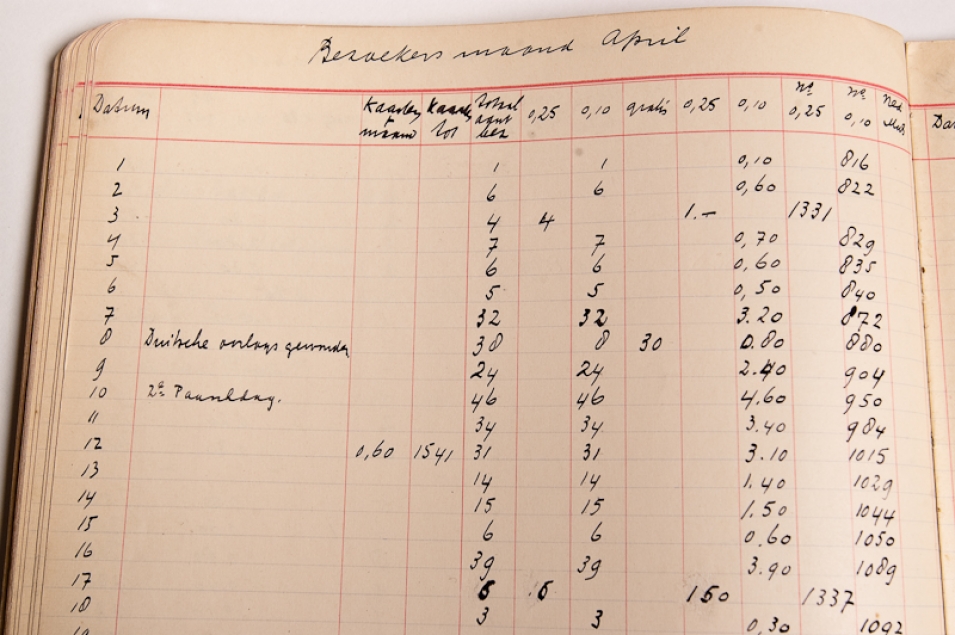 Bezoekers maand April
Datum Kaarten maand Kaarten tot totaal aant bez 0,25 0,10 gratis 0,25 0,10 No 0,25 No 0,10 Ned
1 1 1 0,10 816
2 6 6 0,60 822
3 4 4 1.- 1331
4 7 7 0,70 829
5 6 6 0,60 835
6 5 5 0,50 840
7 32 32 3.20 872
8 Duitsche oorlogs gewonden 38 8 30 0.80 880
9 24 24 2.40 904
10 2e Paaschdag. 46 46 4.60 950
11 34 34 3.40 984
12 0,60 1541 31 31 3.10 1015
13 14 14 1.40 1029
14 15 15 1.50 1044
15 6 6 0.60 1050
16 39 39 3.90 1089
17 6 6 150 1337
18 3 3 0,30 1092